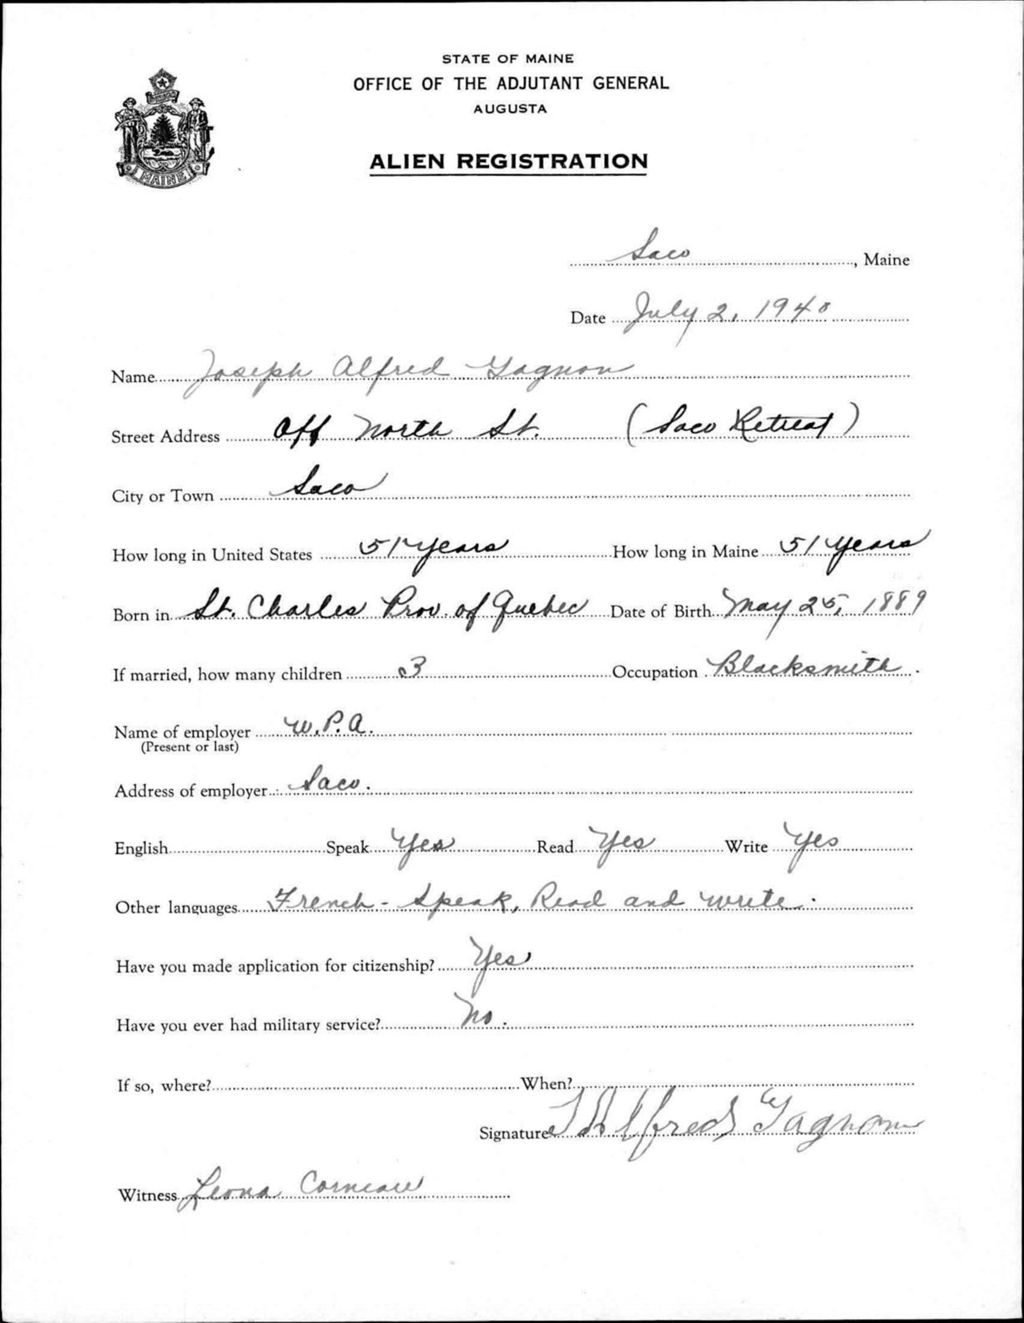 STATE OF MAINE
OFFICE OF THE ADJUTANT GENERAL
AUGUSTA
MAINE
ALIEN REGISTRATION
Saco, Maine
Date July 2, 1940
Name Joseph Alfred Gagnon
Street Address Off North St. (Saco Retreat)
City or Town Saco
How long in United States 51 years How long in Maine 51 years
Born in St. Charles Prov. of Quebec Date of Birth May 25, 1889
If married, how many children 3 Occupation Blacksmith.
Name of employer W.P.A.
(Present or last)
Address of employer Saco.
English Speak Yes Read Yes Write Yes
Other languages French - Speak, Read and write.
Have you made application for citizenship? Yes
Have you ever had military service? No.
If so, where? When?
Signature J Alfred Gagnon
Witness Leona